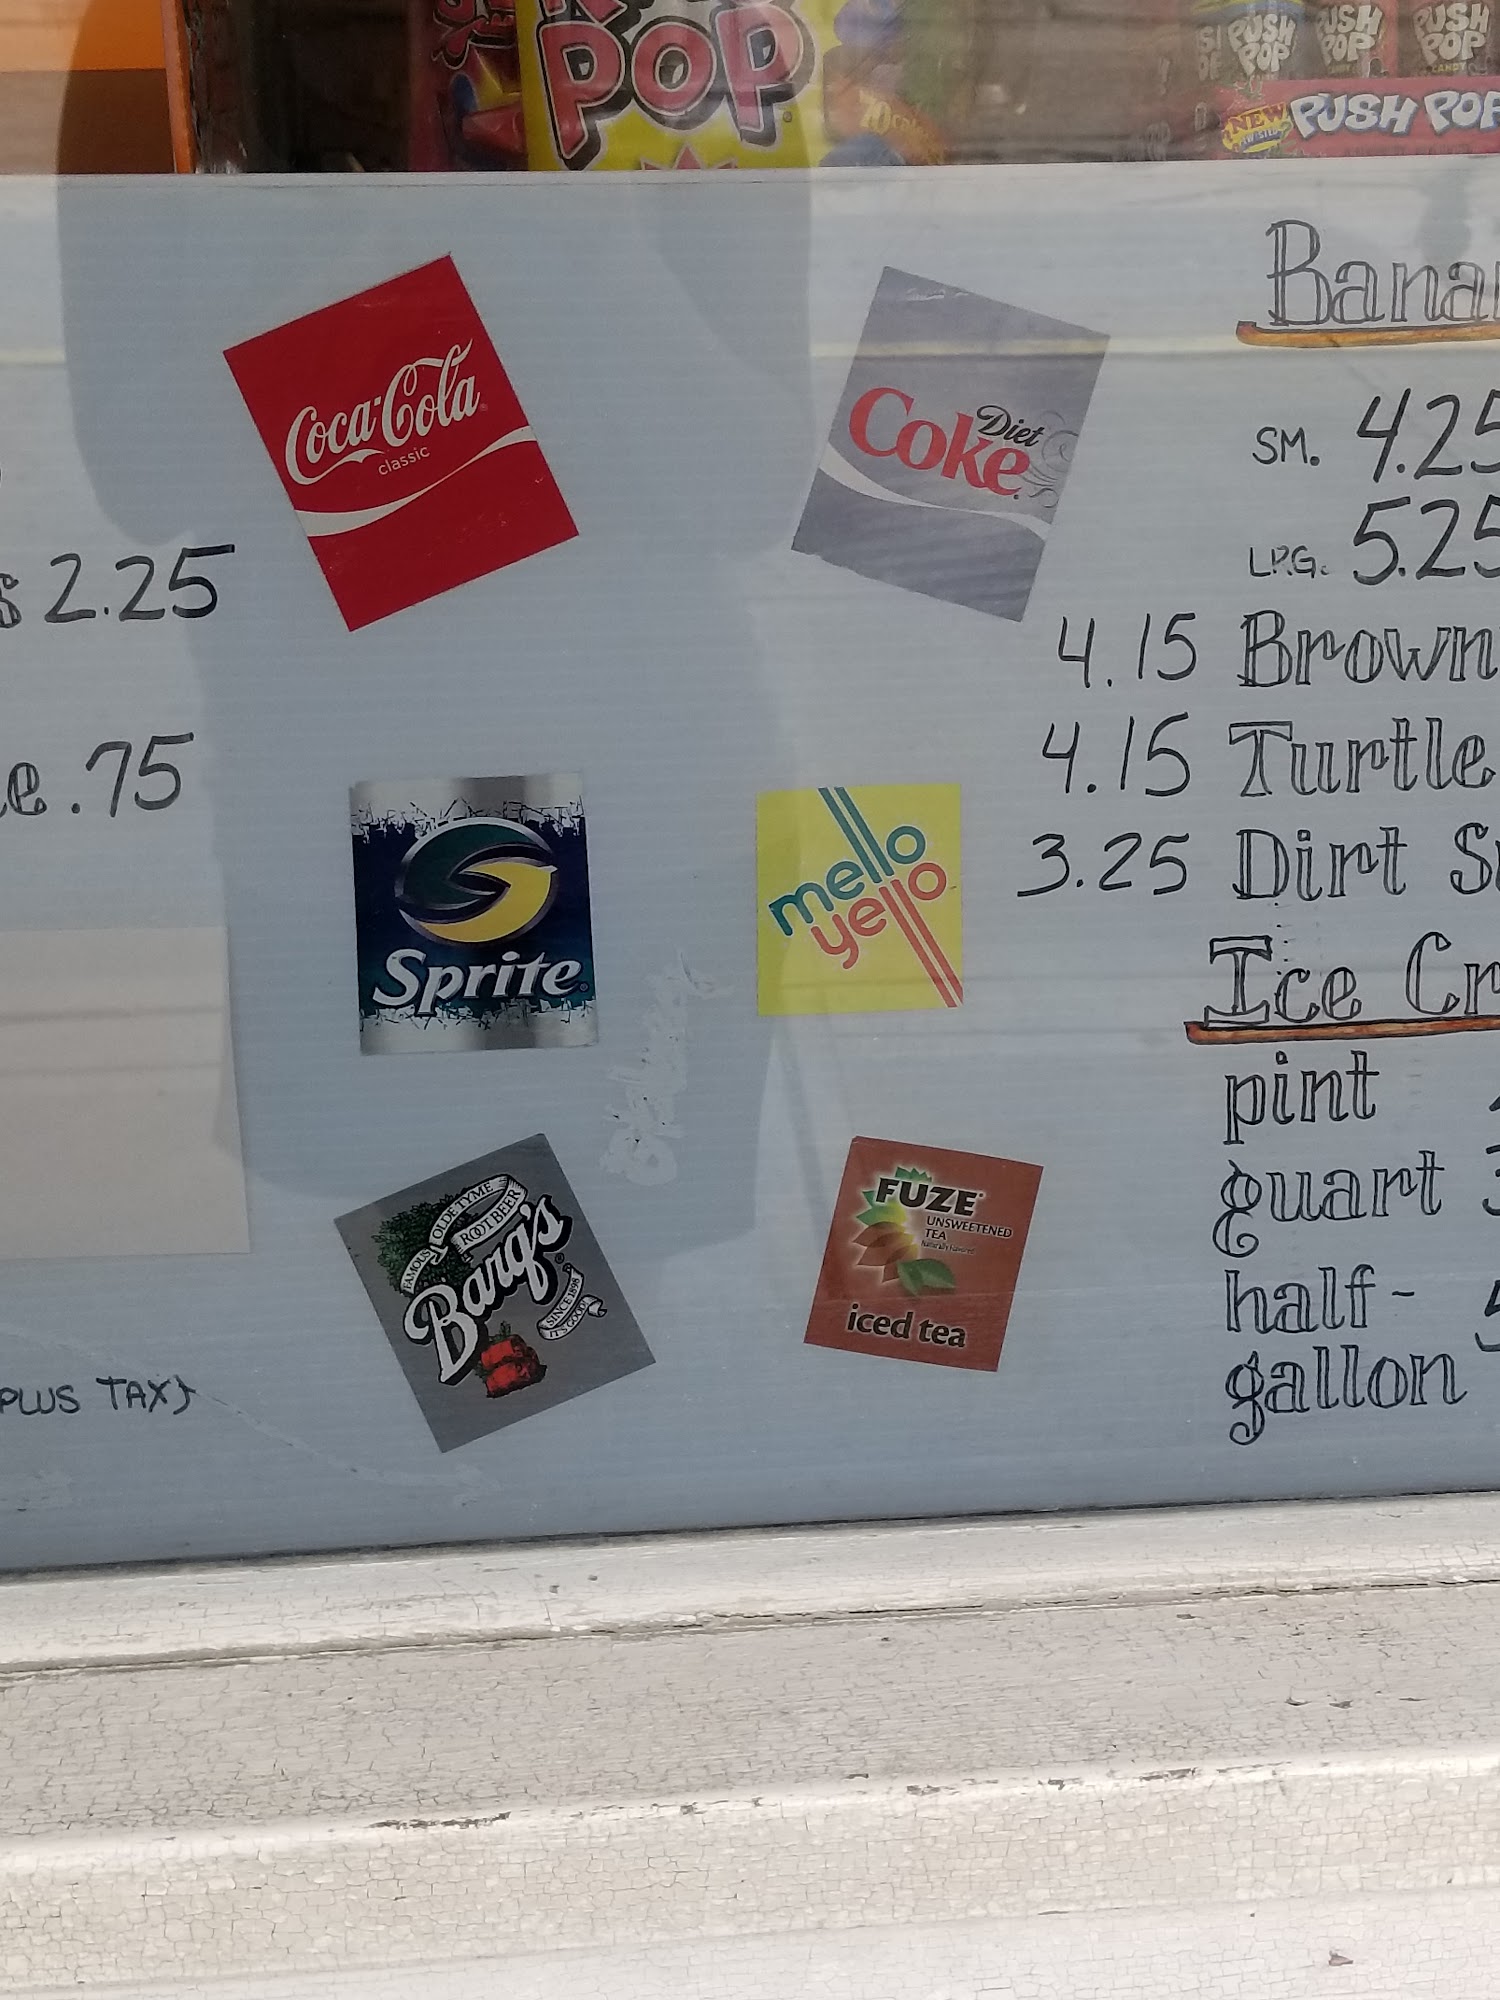 POP
PUSH POP
PUSH POP
PUSH POP
NEW
PUSH POP
Coca-Cola
classic
Diet
Coke
SM. 4.25
LRG. 5.25
2.25
4.15
4.15 Turtle
.75
3.25 Dirt
Sprite
mello
yello
pint
quart
half-
gallon
FAMOUS OLDE TYME
ROOT BEER
Barq's
SINCE 1898
IT'S GOOD
FUZE
UNSWEETENED
TEA
Naturally Flavored
iced tea
PLUS TAX)